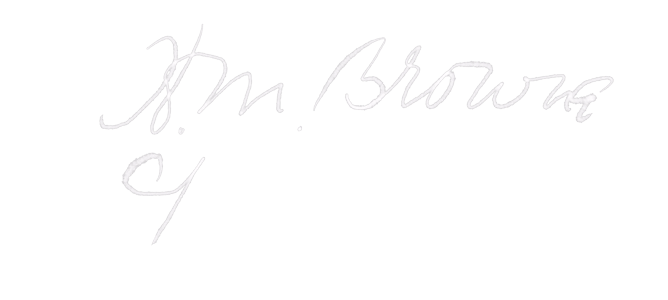 H. M. Browne